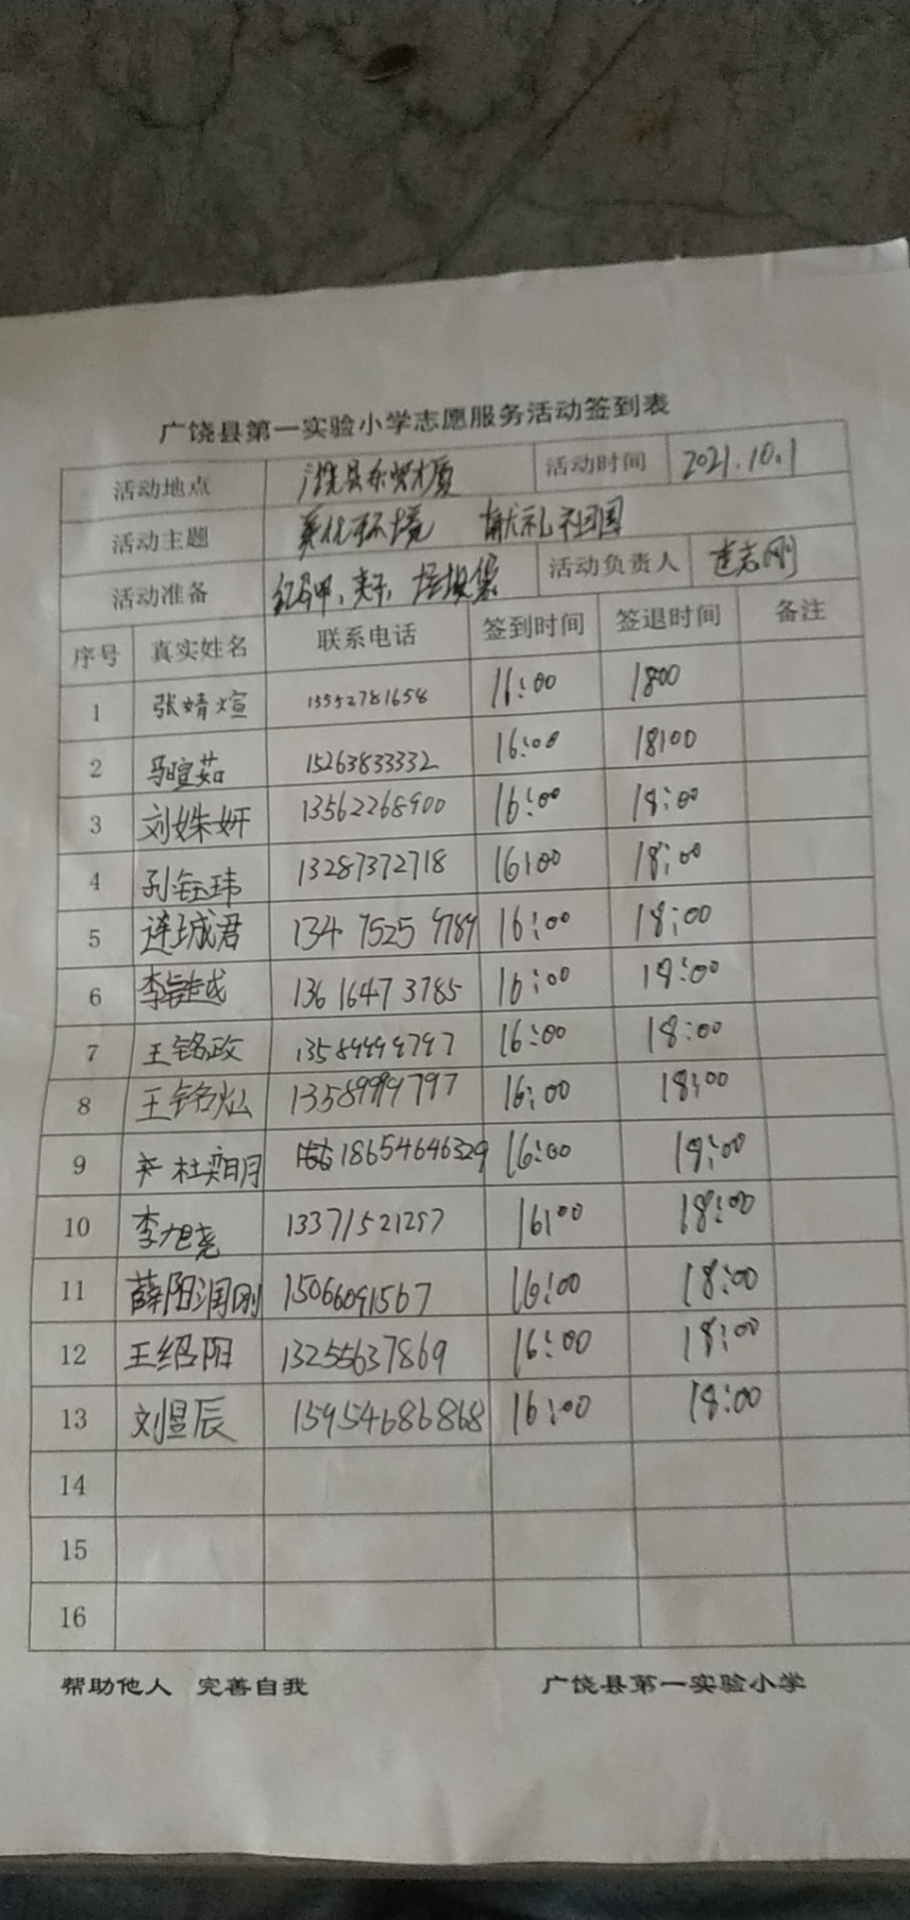 广饶县第一实验小学志愿服务活动签到表
活动地点 广饶县东贸大厦 活动时间 2021.10.1
活动主题 美化环境 献礼祖国
活动准备 红马甲、夹子、垃圾袋 活动负责人 连志刚
序号 真实姓名 联系电话 签到时间 签退时间 备注
1 张婧煊 15552781658 16:00 1800
2 马暄茹 15263833332 16:00 18:00
3 刘姝妍 13562268900 16:00 18:00
4 孙钰玮 13287372718 16:00 18:00
5 连城君 134 7525 9789 16:00 18:00
6 李喆越 136 1647 3785 16:00 18:00
7 王铭政 13589999797 16:00 18:00
8 王铭灿 13589999797 16:00 18:00
9 杜奕明 18654646329 16:00 18:00
10 李旭尧 13371521257 16:00 18:00
11 薛阳润刚 15066091567 16:00 18:00
12 王绍阳 13255637869 16:00 18:00
13 刘昱辰 15954686868 16:00 18:00
14
15
16
帮助他人 完善自我 广饶县第一实验小学